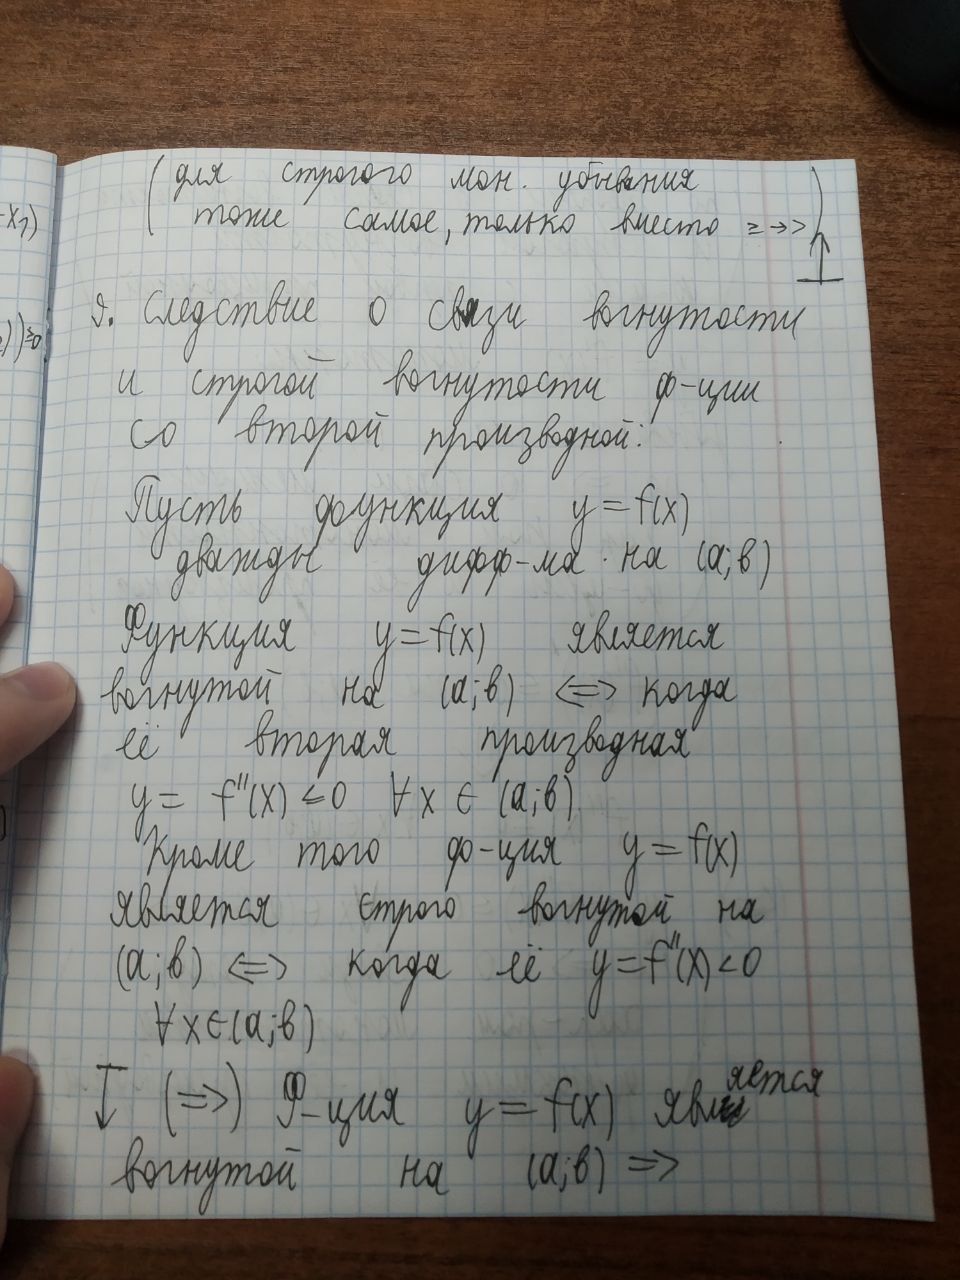 -x₁)
))≥0
(для строгого мон. убывания
тоже самое, только вместо ≥ → >)
9. Следствие о связи вогнутости
и строгой вогнутости ф-ции
со второй производной:
Пусть функция y = f(x)
дважды дифф-ма на (a;b)
Функция y = f(x) является
вогнутой на (a;b) <=> когда
её вторая производная
y = f''(x) ≤ 0 ∀ x ∈ (a;b)
Кроме того ф-ция y = f(x)
является строго вогнутой на
(a;b) <=> когда её y = f''(x) < 0
∀ x ∈ (a;b)
(=>) Ф-ция y = f(x) является
вогнутой на (a;b) =>